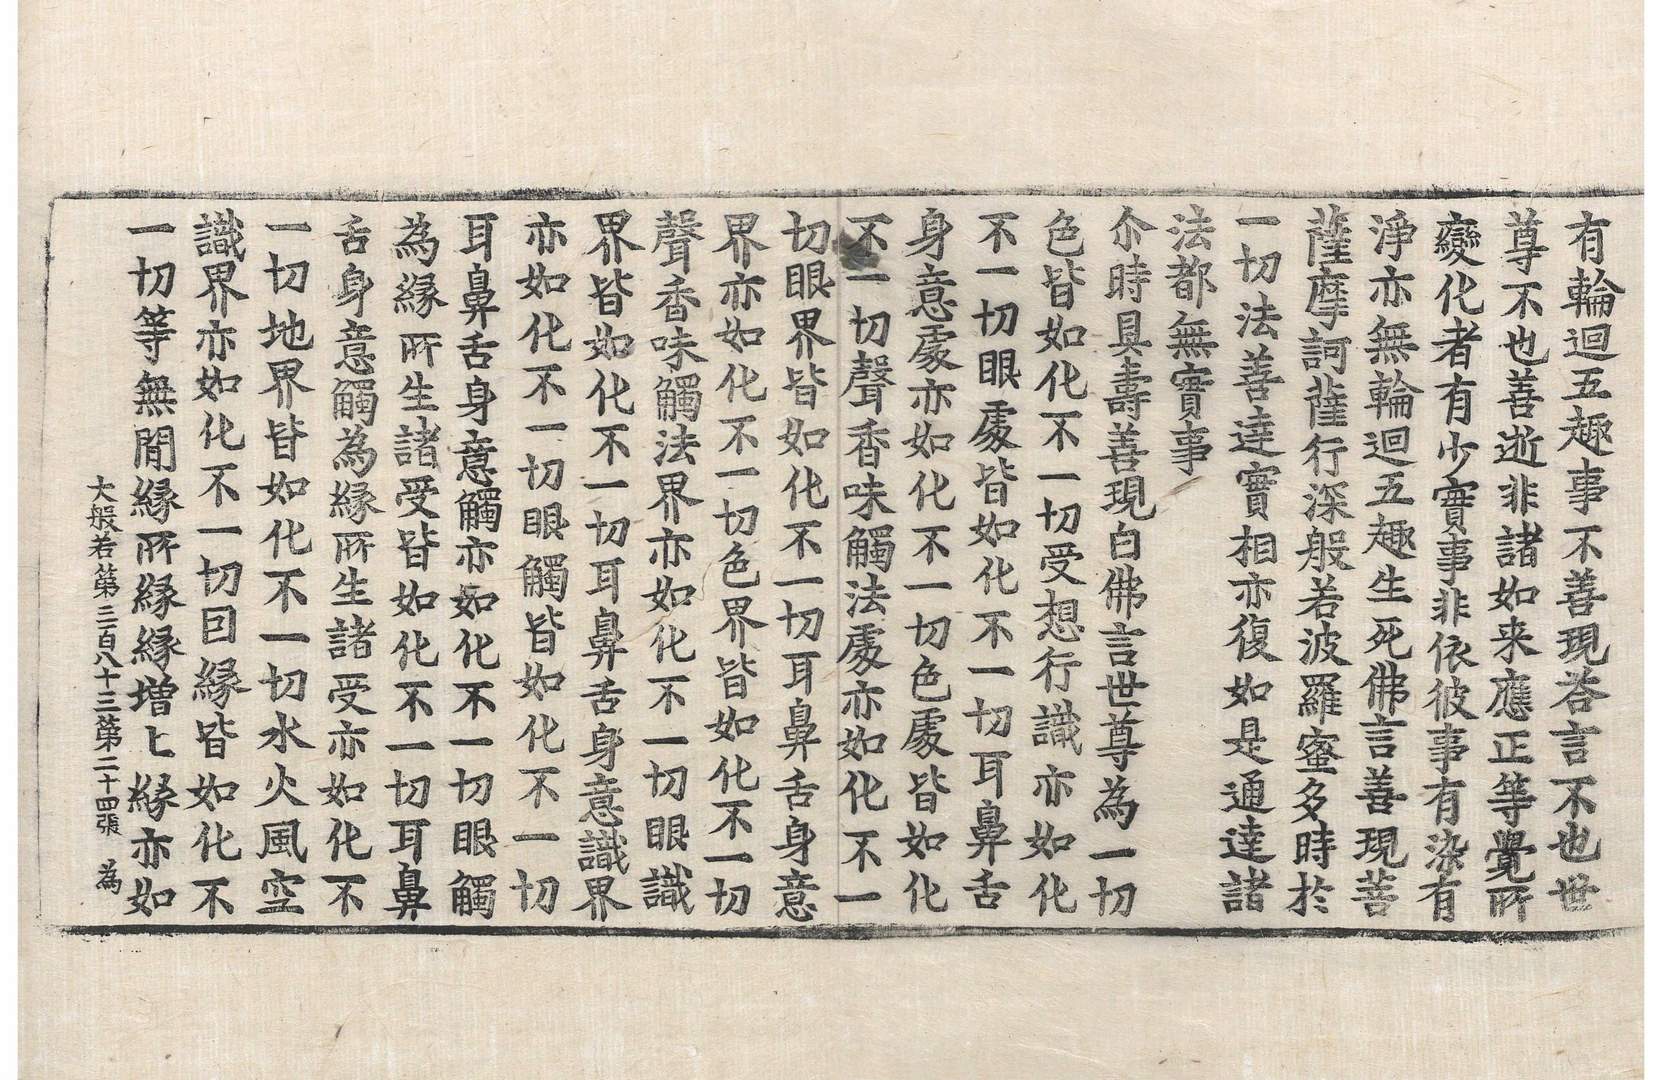 有輪迴五趣事不善現荅言不也世
尊不也善逝非諸如来應正等覺所
變化者有少實事非依彼事有染有
淨亦無輪迴五趣生死佛言善現菩
薩摩訶薩行深般若波羅蜜多時於
一切法善逹實相亦復如是通逹諸
法都無實事
尒時具壽善現白佛言世尊為一切
色皆如化不一切受想行識亦如化
不一切眼處皆如化不一切耳鼻舌
身意處亦如化不一切色處皆如化
不一切聲香味觸法處亦如化不一
切眼界皆如化不一切耳鼻舌身意
界亦如化不一切色界皆如化不一切
聲香味觸法界亦如化不一切眼識
界皆如化不一切耳鼻舌身意識界
亦如化不一切眼觸皆如化不一切
耳鼻舌身意觸亦如化不一切眼觸
為緣所生諸受皆如化不一切耳鼻
舌身意觸為緣所生諸受亦如化不
一切地界皆如化不一切水火風空
識界亦如化不一切囙緣皆如化不
一切等無閒緣所緣緣增上緣亦如
大般若第三百八十三第二十四張 為